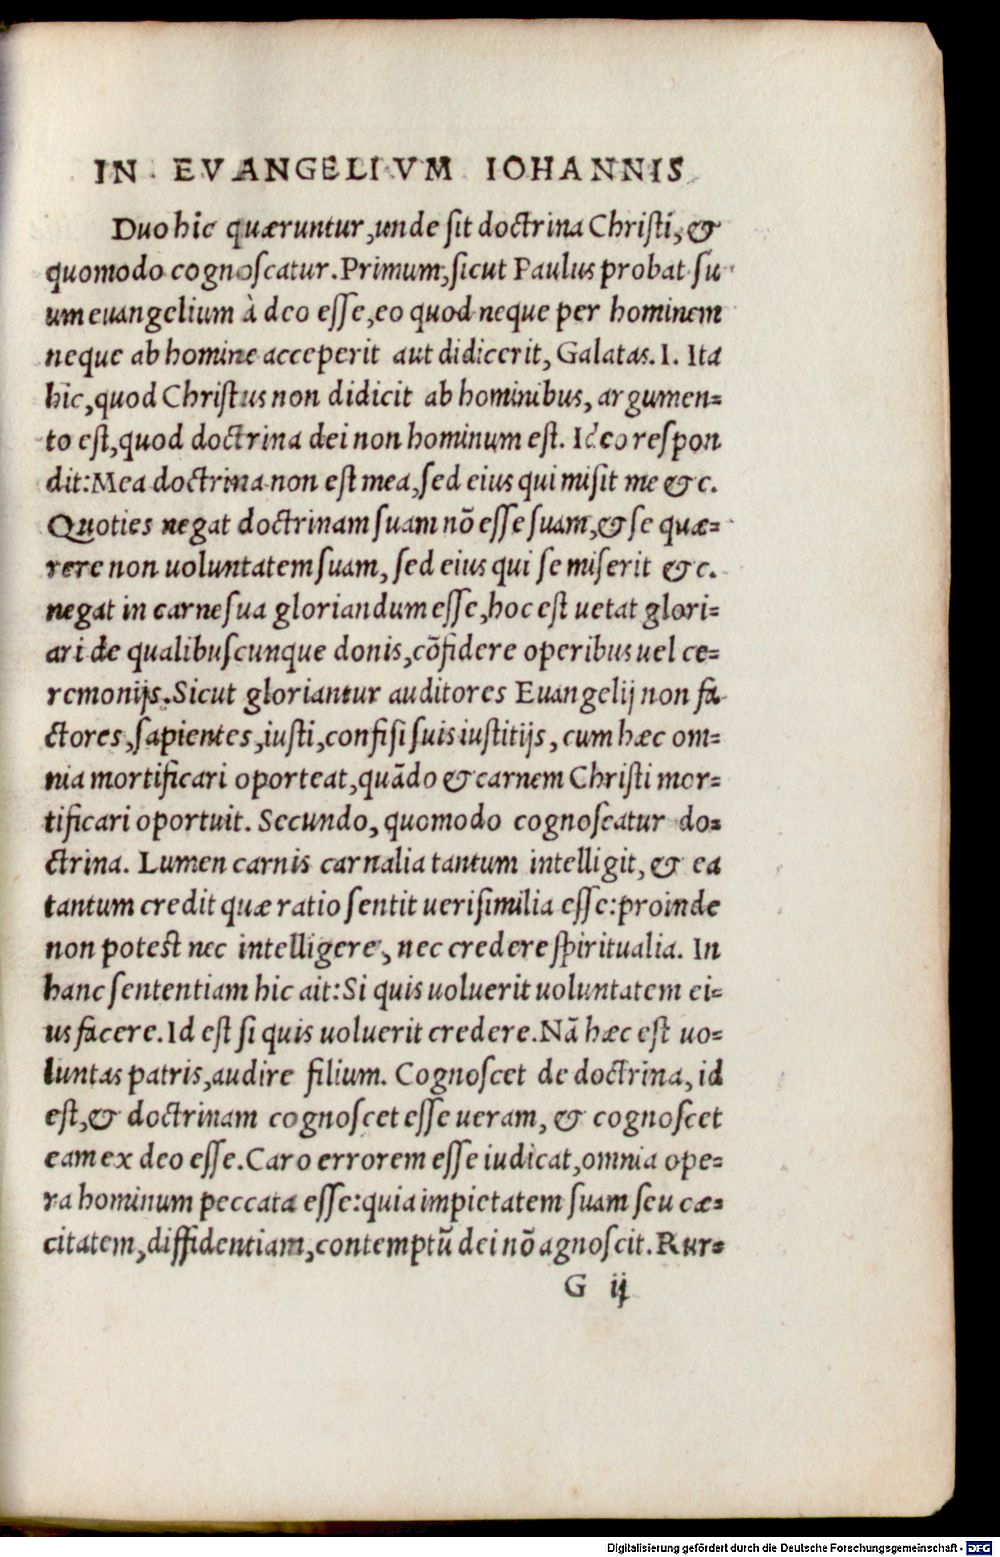 IN EVANGELIVM IOHANNIS
Duo hîc quæruntur, unde sit doctrina Christi, &
quomodo cognoscatur. Primum, sicut Paulus probat su
um euangelium à deo esse, eo quod neque per hominem
neque ab homine acceperit aut didicerit, Galatas. I. Ita
hîc, quod Christus non didicit ab hominibus, argumen=
to est, quod doctrina dei non hominum est. Ideo respon
dit: Mea doctrina non est mea, sed eius qui misit me &c.
Quoties negat doctrinam suam nō esse suam, & se quæ=
rere non uoluntatem suam, sed eius qui se miserit &c.
negat in carne sua gloriandum esse, hoc est uetat glori=
ari de qualibuscunque donis, cōfidere operibus uel ce=
remonijs. Sicut gloriantur auditores Euangelij non fa
ctores, sapientes, iusti, confisi suis iustitijs, cum hæc om=
nia mortificari oporteat, quādo & carnem Christi mor=
tificari oportuit. Secundo, quomodo cognoscatur do=
ctrina. Lumen carnis carnalia tantum intelligit, & ea
tantum credit quæ ratio sentit uerisimilia esse: proinde
non potest nec intelligere, nec credere spiritualia. In
hanc sententiam hic ait: Si quis uoluerit uoluntatem ei=
us facere. Id est si quis uoluerit credere. Nā hæc est uo=
luntas patris, audire filium. Cognoscet de doctrina, id
est, & doctrinam cognoscet esse ueram, & cognoscet
eam ex deo esse. Caro errorem esse iudicat, omnia ope=
ra hominum peccata esse: quia impietatem suam seu cæ=
citatem, diffidentiam, contemptū dei nō agnoscit. Rur=
G ij
Digitalisierung gefördert durch die Deutsche Forschungsgemeinschaft - DFG